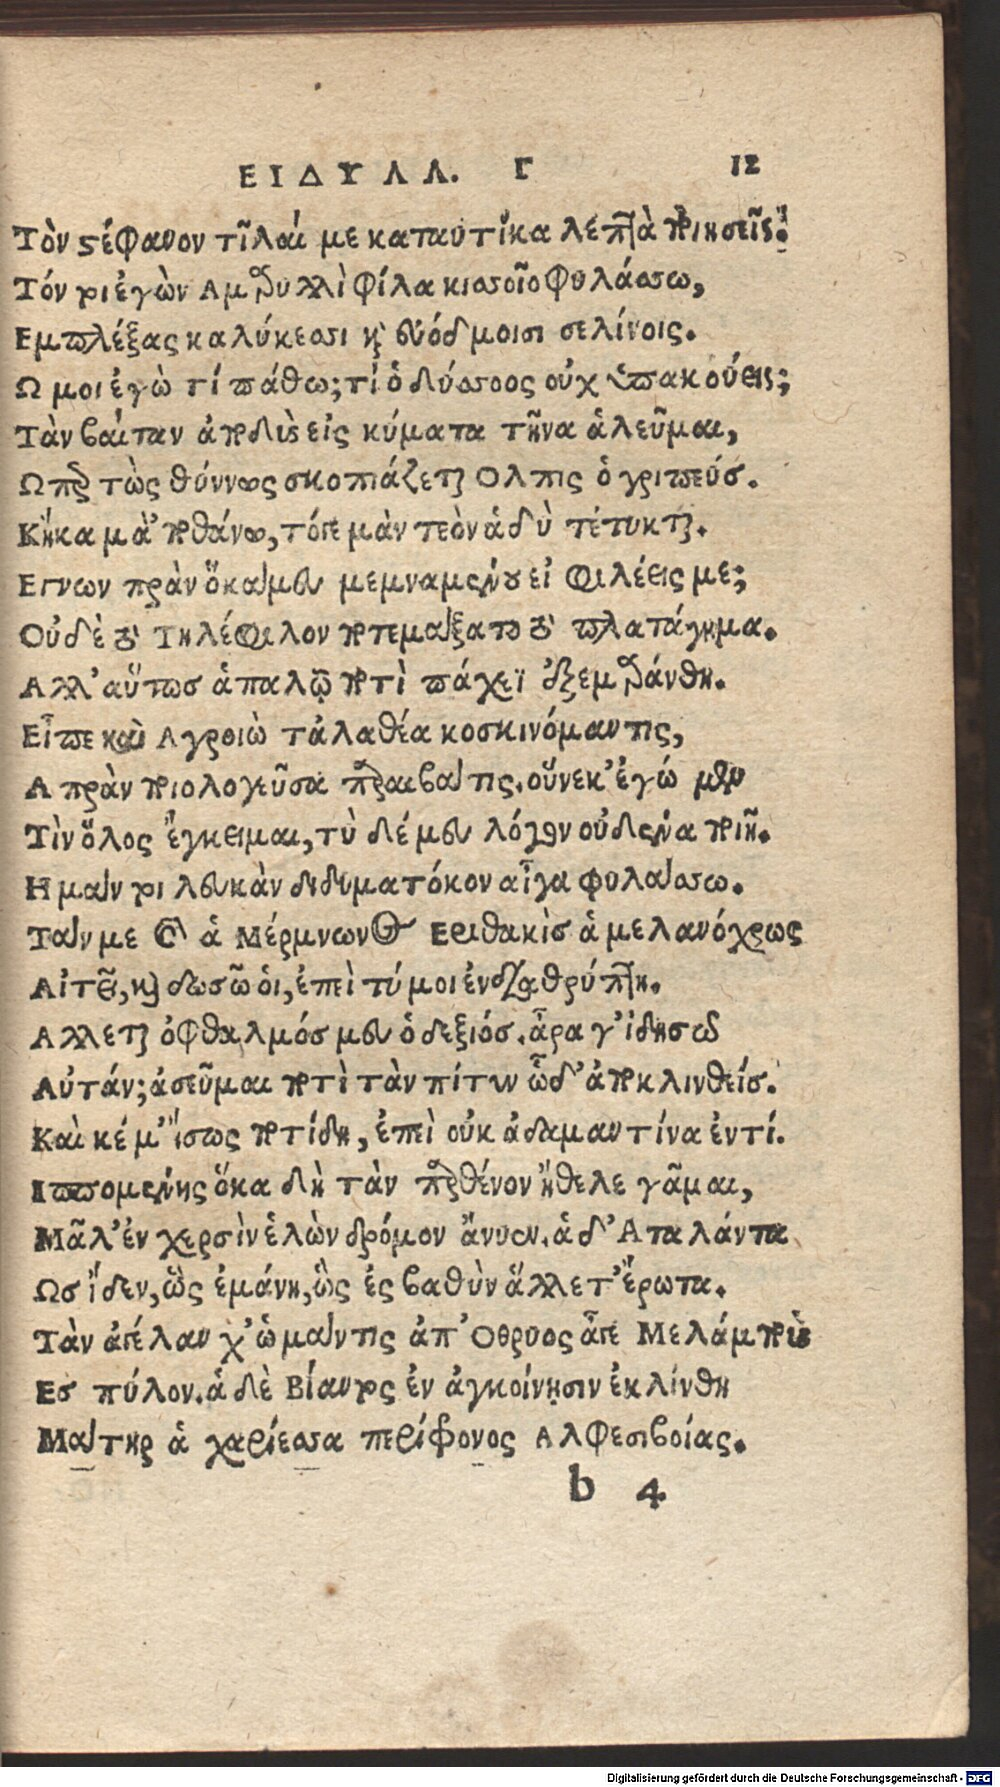 ΕΙΔΥΛΛ. Γ 12
Τὸν στέφανον τῖλαί με καταυτίκα λεπτὰ ποιησεῖς.
Τόν τοι ἐγὼν Αμαρυλλὶ φίλα κισσοῖο φυλάσσω,
Εμπλέξας καλύκεσσι καὶ εὐόδμοισι σελίνοις.
Ω μοι ἐγὼ τί πάθω; τί ὁ δύσσοος οὐχ ὑπακούεις;
Τὰν βαίταν ἀποδὺς εἰς κύματα τῆνα ἁλεῦμαι,
Ωπερ τὼς θύννως σκοπιάζεται Ολπις ὁ γριπεύς.
Κἤκα μὰ ποθάνω, τό γε μὰν τεὸν ἁδὺ τέτυκται.
Εγνων πρὰν ὅκα μευ μεμναμένου εἰ φιλέεις με;
Οὐδὲ τὸ τηλέφιλον ποτεμάξατο τὸ πλατάγημα.
Αλλ' αὕτως ἁπαλῷ ποτὶ πάχεϊ ἐξεμαράνθη.
Εἶπε καὶ Αγροιὼ τἀλαθέα κοσκινόμαντις,
Α πρὰν ποιολογεῦσα παραιβάτις. οὕνεκ' ἐγώ μὲν
Τὶν ὅλος ἔγκειμαι, τὺ δέ μευ λόγον οὐδένα ποιῇ.
Η μάν τοι λευκὰν διδυματόκον αἶγα φυλάσσω.
Τάν με καὶ ἁ Μέρμνωνος Εριθακὶς ἁ μελανόχρως
Αἰτεῖ, καὶ δωσῶ οἱ, ἐπεὶ τύ μοι ἐνδιαθρύπτῃ.
Αλλεται ὀφθαλμός μευ ὁ δεξιός. ἆρα γ' ἰδησῶ
Αὐτάν; ἀσεῦμαι ποτὶ τὰν πίτυν ὧδ' ἀποκλινθείς.
Καὶ κέ μ' ἴσως ποτίδῃ, ἐπεὶ οὐκ ἀδαμαντίνα ἐντί.
Ιππομένης ὅκα δὴ τὰν παρθένον ἤθελε γᾶμαι,
Μᾶλ' ἐν χερσὶν ἑλὼν δρόμον ἄνυσν. ἁ δ' Αταλάντα
Ως ἴδεν, ὣς ἐμάνη, ὣς ἐς βαθὺν ἅλλετ' ἔρωτα.
Τὰν ἀγέλαν χ' ὡ μάντις ἀπ' Οθρυος ἆγε Μελάμπους
Ες πύλον. ἁ δὲ Βίαντος ἐν ἀγκοίνῃσιν ἐκλίνθη
Μάτηρ ἁ χαρίεσσα περίφρονος Αλφεσιβοίας.
b 4
Digitalisierung gefördert durch die Deutsche Forschungsgemeinschaft - DFG